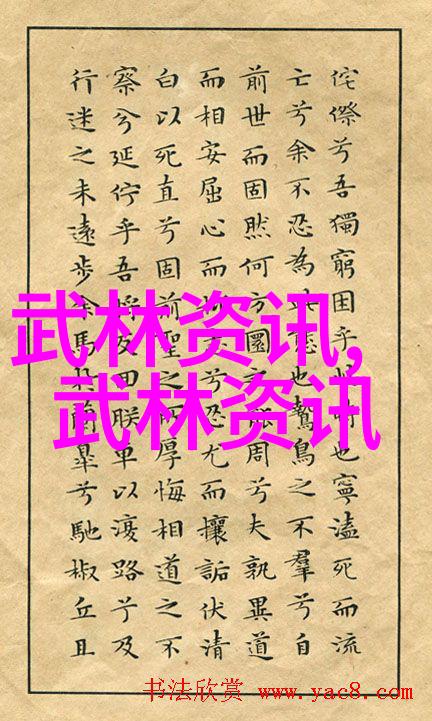 侘傺兮吾獨窮困乎也寧溘死而流
亡兮余不忍為態也鷙鳥之不羣兮自
前世而固然何方圜之周兮夫孰異道
而相安屈心而兮忍尤而攘詬伏清
白以死直兮固前聖之所厚悔相道之不
察兮延佇乎吾將反回朕車以復路兮及
行迷之未遠步余馬蘭皋兮馳椒丘且
武林资讯,
武林资讯
书法欣赏 www.yac8.com